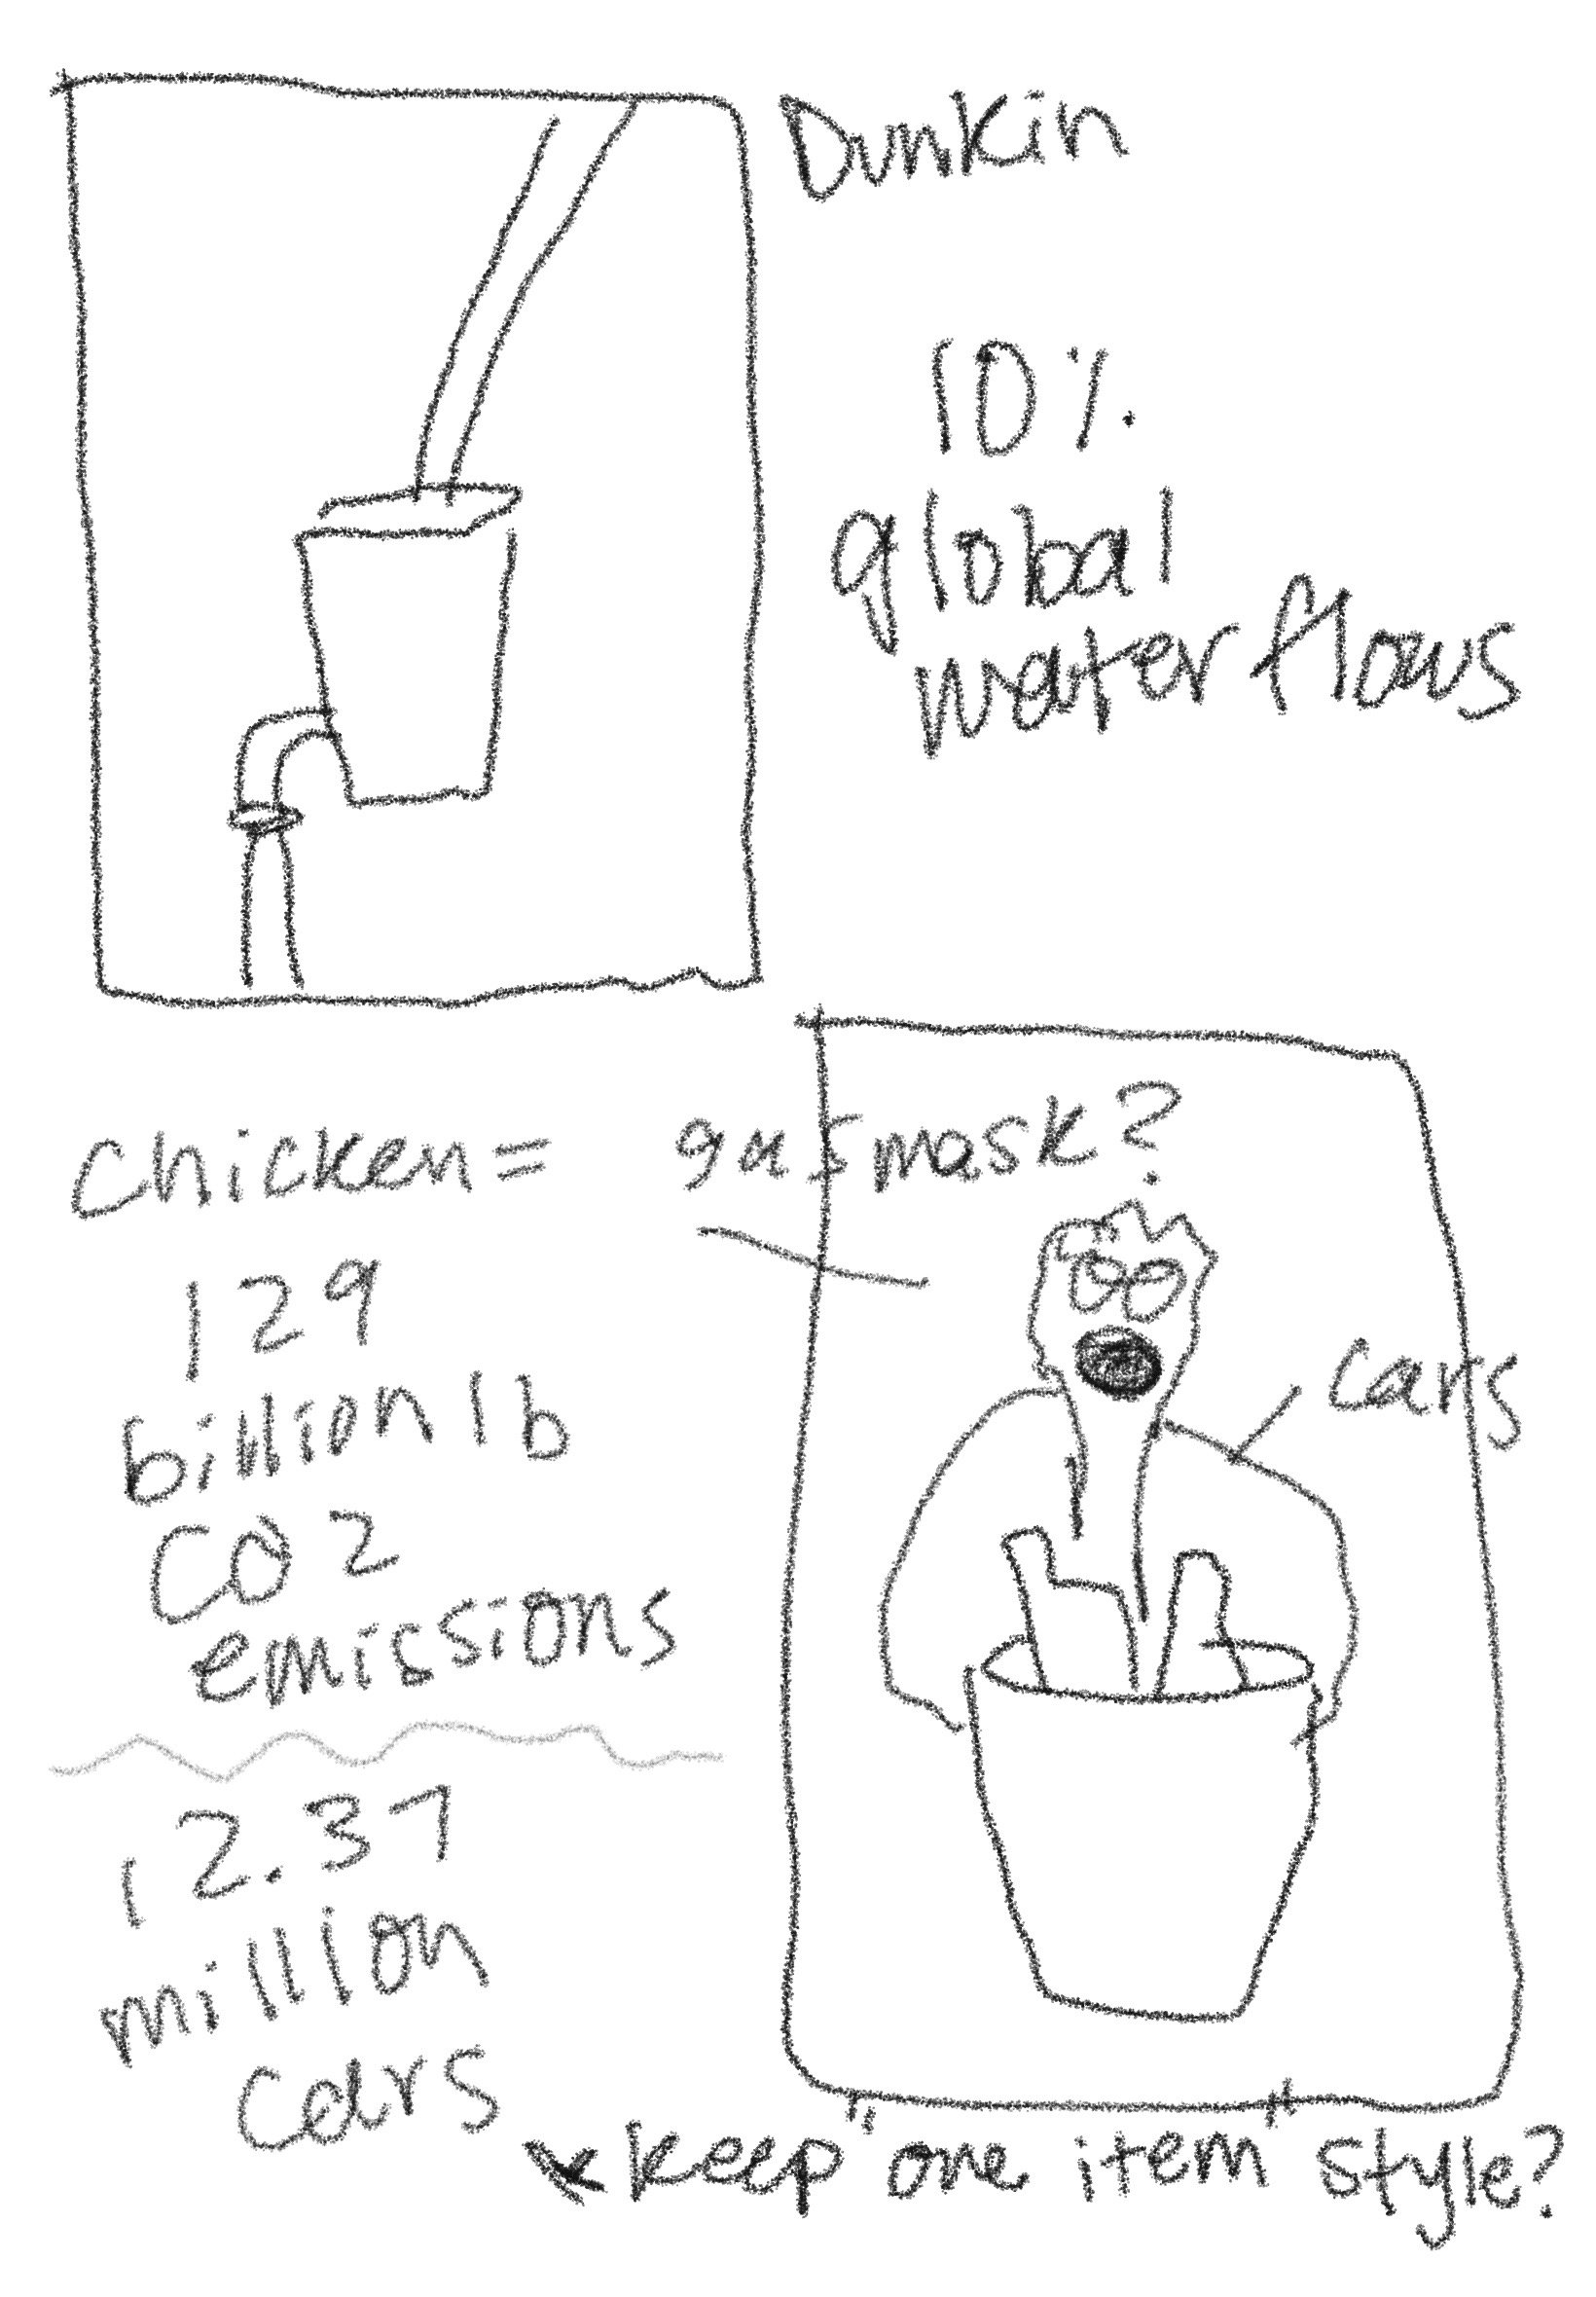 Dunkin
10%
global
water flows
chicken =
gas mask?
129
billion lb
CO2
emissions
cars
12.37
million
cars
*keep "one item" style?